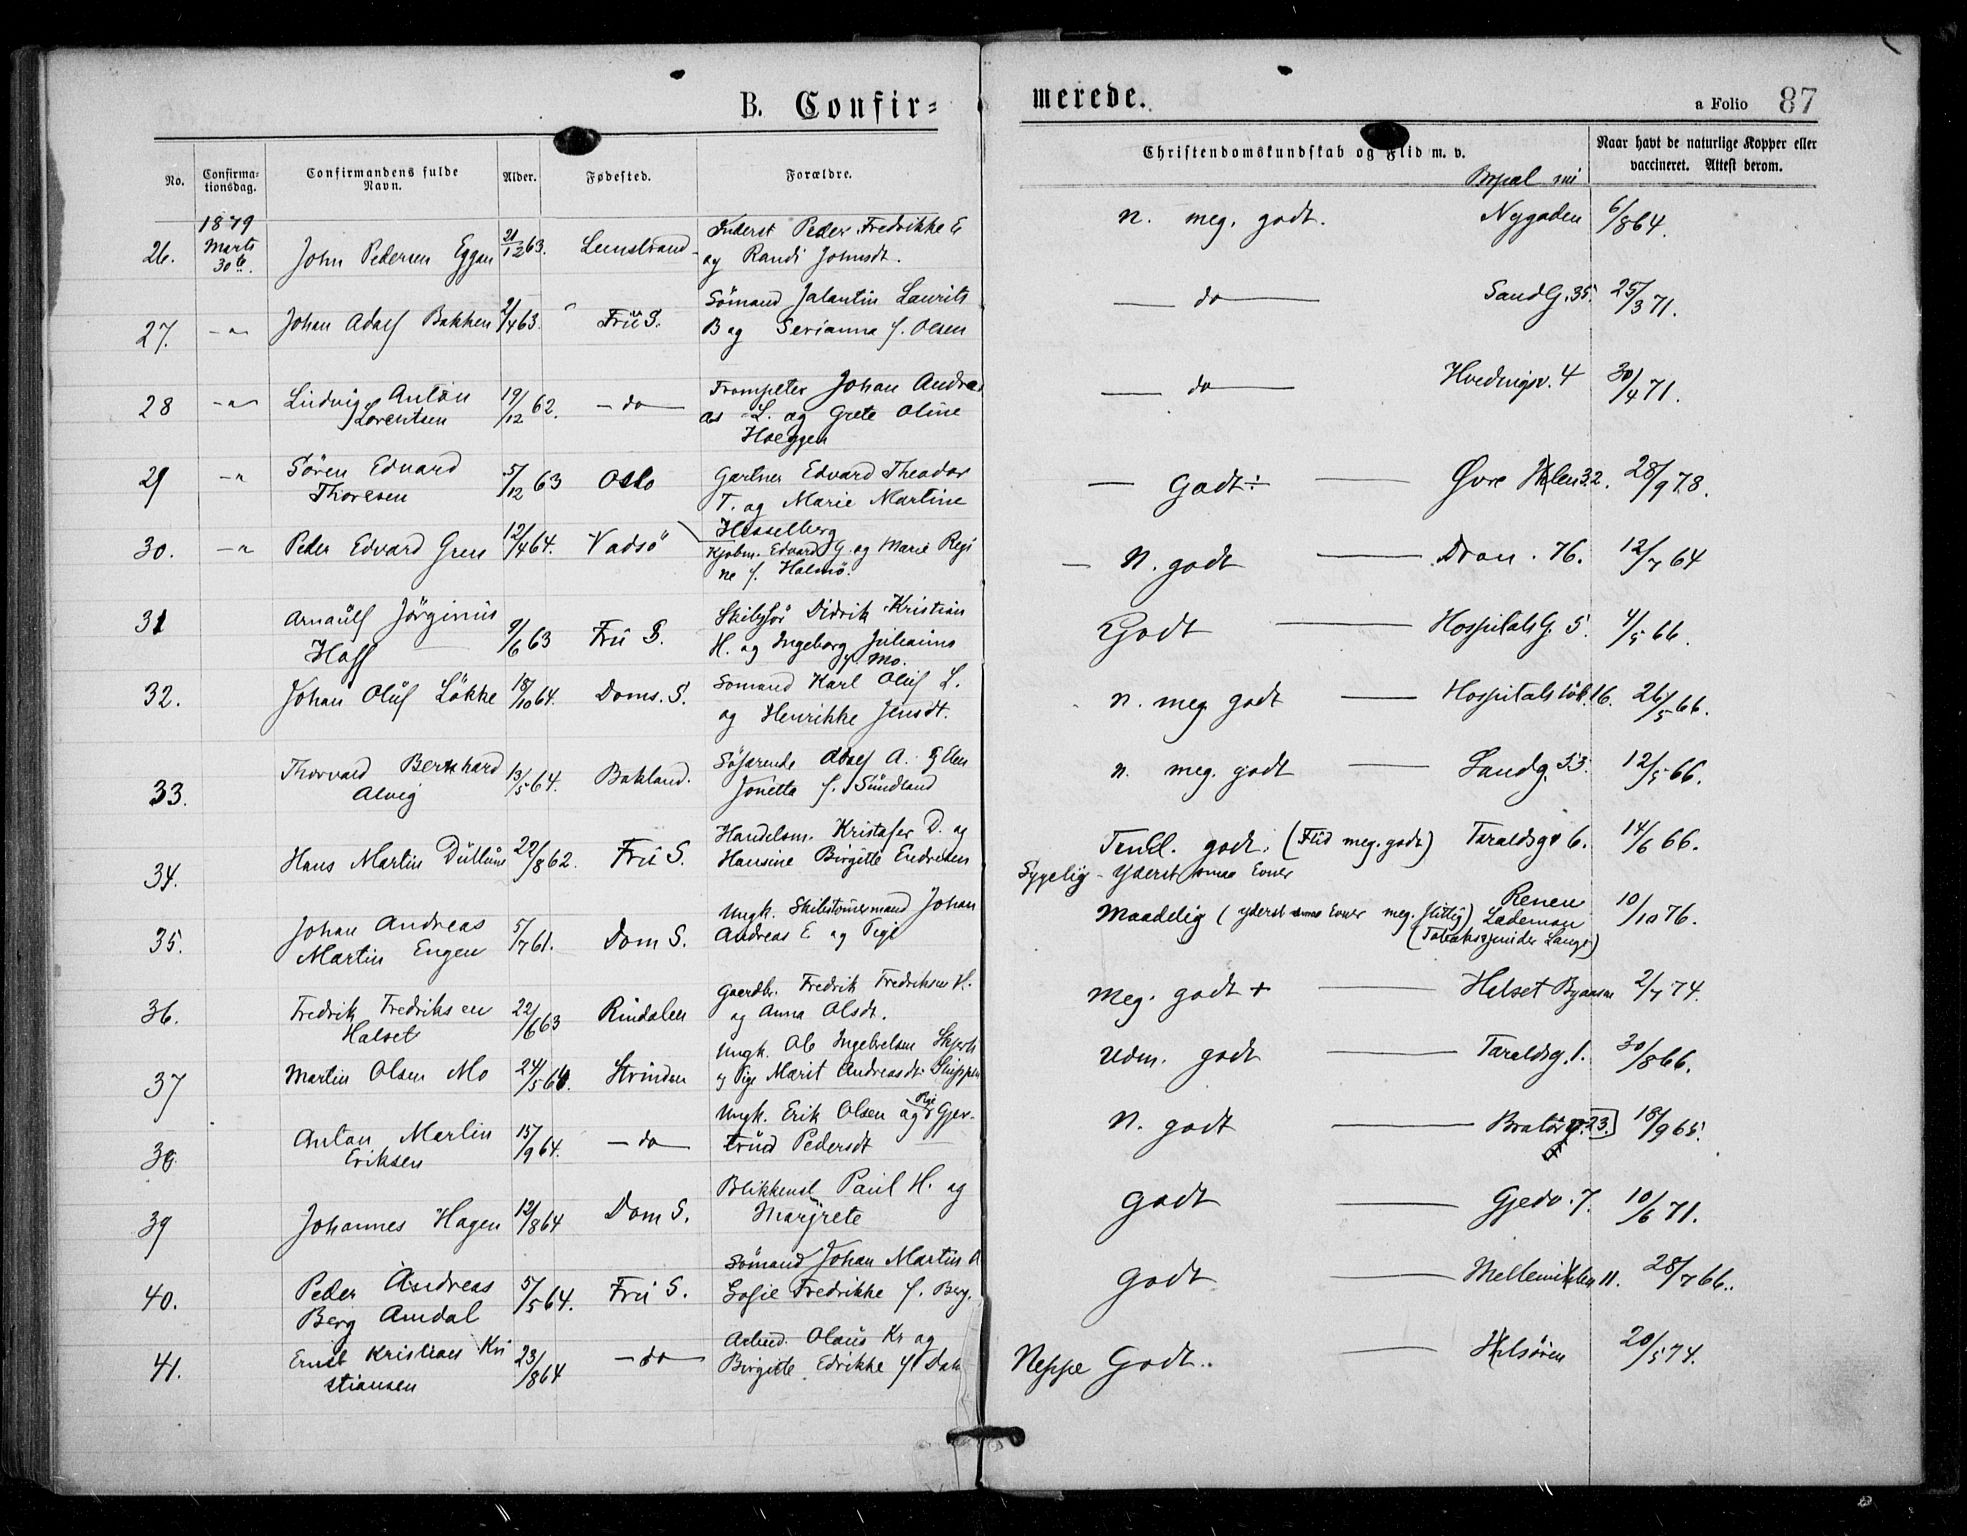 B. Confir=
merede.
a Folio 87
No.
Confirma-
tionsdag.
Confirmandens fulde
Navn.
Alder.
Fødested.
Forældre.
Christendomskundskab og Flid m. v.
Naar havt de naturlige Kopper eller
vaccineret. Attest derom.
Bopæl
1879
26. Marts John Pedersen Eggan 21/12 63. Lenstrand
30te.
Inderst Peder Fredrikke E
og Randi Johnsdt.
n. meg. godt. Nygaden 6/8 64.
27. -"- Johan Adolf Bakken 2/4 63. Frü S.
Sömand Jalantin Laurits
B og Serianna f. Olsen
do SandG. 35. 25/3 71.
28 -"- Ludvig Anton 19/12 62. - do -
Lorentsen
Trompeter Johan Andre
as L. og Grete Oline
Hoeggen
do Hvedingsv. 4 30/4 71.
29 -"- Sören Edvard 5/12 63 Oslo
Thoresen
Gartner Edvard Theodor
T. og Marie Martine
Hesselberg
Godt ÷ Øvre 32. 28/9 78.
30. -"- Peder Edvard Gren 12/4 64. Vadsö
Kjöbm. Edvard G. og Marie Regi
ne f. Holmö.
N. godt Dron. 76. 12/7 64
31 Arnaülf Jörginüs 9/6 63 Frü S.
Hoff
Skibsför Didrik Kristian
H. og Ingeborg Julianna
f. Mo.
Godt HospitalsG. 5. 4/5 66.
32. Johan Olüf Lökke 18/10 64. Doms. S.
Somand Karl Olüf L.
og Henrikke Jensdt.
n. meg godt Hospitalslök. 16. 26/5 66.
33. Thorvard Bernhard 13/5 64. Bakland.
Alvig
Söfarende Adolf A. & Elen
Jonetta f. Sündland
n. meg. godt Sandg. 53. 12/5 66.
34. Hans Martin 22/8 62. Frü S.
Handelsm. Kristofer D. og
Hansine Birgitte Endresen
Temel. godt. (Flid meg. godt) Taraldsgt 6. 14/6 66.
Sygelig - Yderst smaa Evner
35. Johan Andreas 5/7 61. Dom S.
Martin Engen
Ungk. Skibstömermand Johan
Andreas E og Pige
Maadelig (yderst smaa Evner meg. flittig) Lademoen 10/10 76.
(Tobaksspinder Lange)
36. Fredrik Fredriksen 22/6 63 Rindalen
Halset
Gaardbr. Fredrik Fredriksen H.
og Anna Olsdt.
Meg. godt + Halset Byaasen 2/7 74.
37 Martin Olsen Mo 24/5 64. Strinden
Ungk. Ole Ingebrelsen
& Pige Marit Andreasdt.
Udm. godt Taraldsg. 1. 30/8 66.
38 Anton Martin 15/9 64. - do -
Eriksen
Ungk. Erik Olsen og Pige Gjer-
trud Pedersdt
N. godt Bratör g. 23. 18/9 65.
39 Johannes Hagen 12/8 64 Dom S.
Blikkensl Paul H. og
Margrete
Godt Gjedv. 7. 10/6 71.
40. Peder Andreas 5/5 64. Frü S.
Berg Amdal
Sömand Johan Martin A
Sofie Fredrikke f. Berg.
Godt Mellem 11. 28/7 66.
41. Ernst Kristian Kri 23/8 64 - do -
stiansen
Arbeid. Olaüs Kr og
Birgitte Edrikke f.
Neppe Godt. Ilsören 20/5 74.